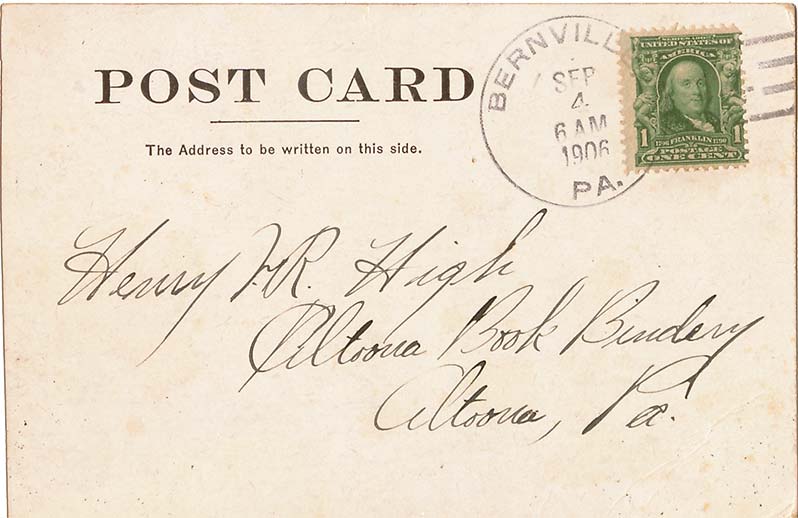 POST CARD
The Address to be written on this side.
BERNVILL
SEP
4
6 AM
1906
PA.
UNITED STATES OF
AMERICA
1
1
FRANKLIN
POSTAGE
ONE CENT
Henry F. R. High
Altoona Book Bindery
Altoona, Pa.